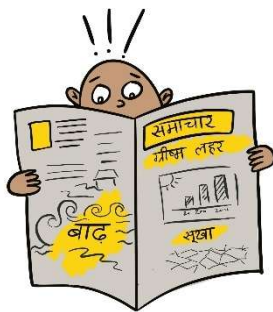 समाचार
ग्रीष्म लहर
बाढ़
सूखा